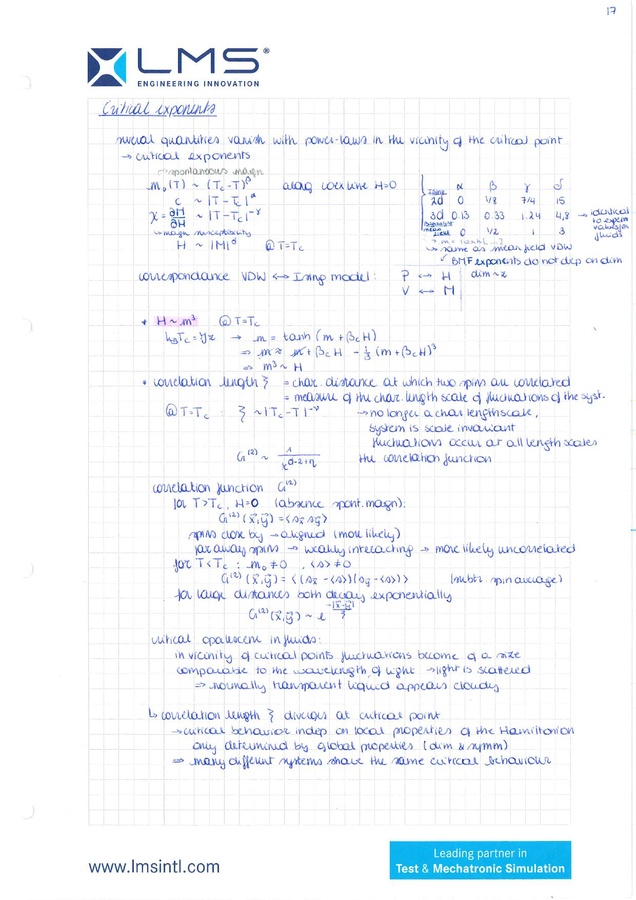 17
LMS®
ENGINEERING INNOVATION
Critical exponents
several quantities vanish with power-laws in the vicinity of the critical point
→ critical exponents
spontaneous magn
m₀(T) ~ (Tc-T)^β along coex line H=0
c ~ |T-Tc|^α
χ = ∂M/∂H ~ |T-Tc|^-γ
→ magn susceptibility
H ~ |M|^δ @ T=Tc
Ising α β γ δ
2d 0 1/8 7/4 15
3d 0.13 0.33 1.24 4,8 → identical to exp values for fluids
mean field 0 1/2 1 3
→ same as mean field VDW
BMF exponents do not dep on dim
correspondance VDW ↔ Ising model: P ↔ H dim ~ 2
V ↔ M
* H ~ m³ @ T=Tc
kBTc = γz → m = tanh (m + βcH)
⇒ m ≈ m + βcH - 1/3 (m + βcH)³
⇒ m³ ~ H
* correlation length ξ = char. distance at which two spins are correlated
= measure of the char. length scale of fluctuations of the syst.
@ T=Tc : ξ ~ |Tc-T|^-ν → no longer a char length scale,
system is scale invariant
fluctuations occur at all length scales
G⁽²⁾ ~ 1/x^(d-2+η) the correlation function
correlation function G⁽²⁾
for T>Tc, H=0 (absence spont. magn):
G⁽²⁾(x⃗,y⃗) = <sx⃗ sy⃗>
spins close by → aligned (more likely)
far away spins → weakly interacting → more likely uncorrelated
for T<Tc : m₀ ≠ 0 , <s> ≠ 0
G⁽²⁾(x⃗,y⃗) = <(sx⃗ - <s>)(sy⃗ - <s>)> (subtr. spin average)
for large distances both decay exponentially
G⁽²⁾(x⃗,y⃗) ~ e^(-|x⃗-y⃗|/ξ)
critical opalescent in fluids:
in vicinity of critical points fluctuations become of a size
comparable to the wavelength of light → light is scattered
⇒ normally transparent liquid appears cloudy
↳ correlation length ξ diverges at critical point
→ critical behavior indep on local properties of the Hamiltonian
only determined by global properties (dim & symm)
⇒ many different systems share the same critical behaviour
www.lmsintl.com
Leading partner in
Test & Mechatronic Simulation